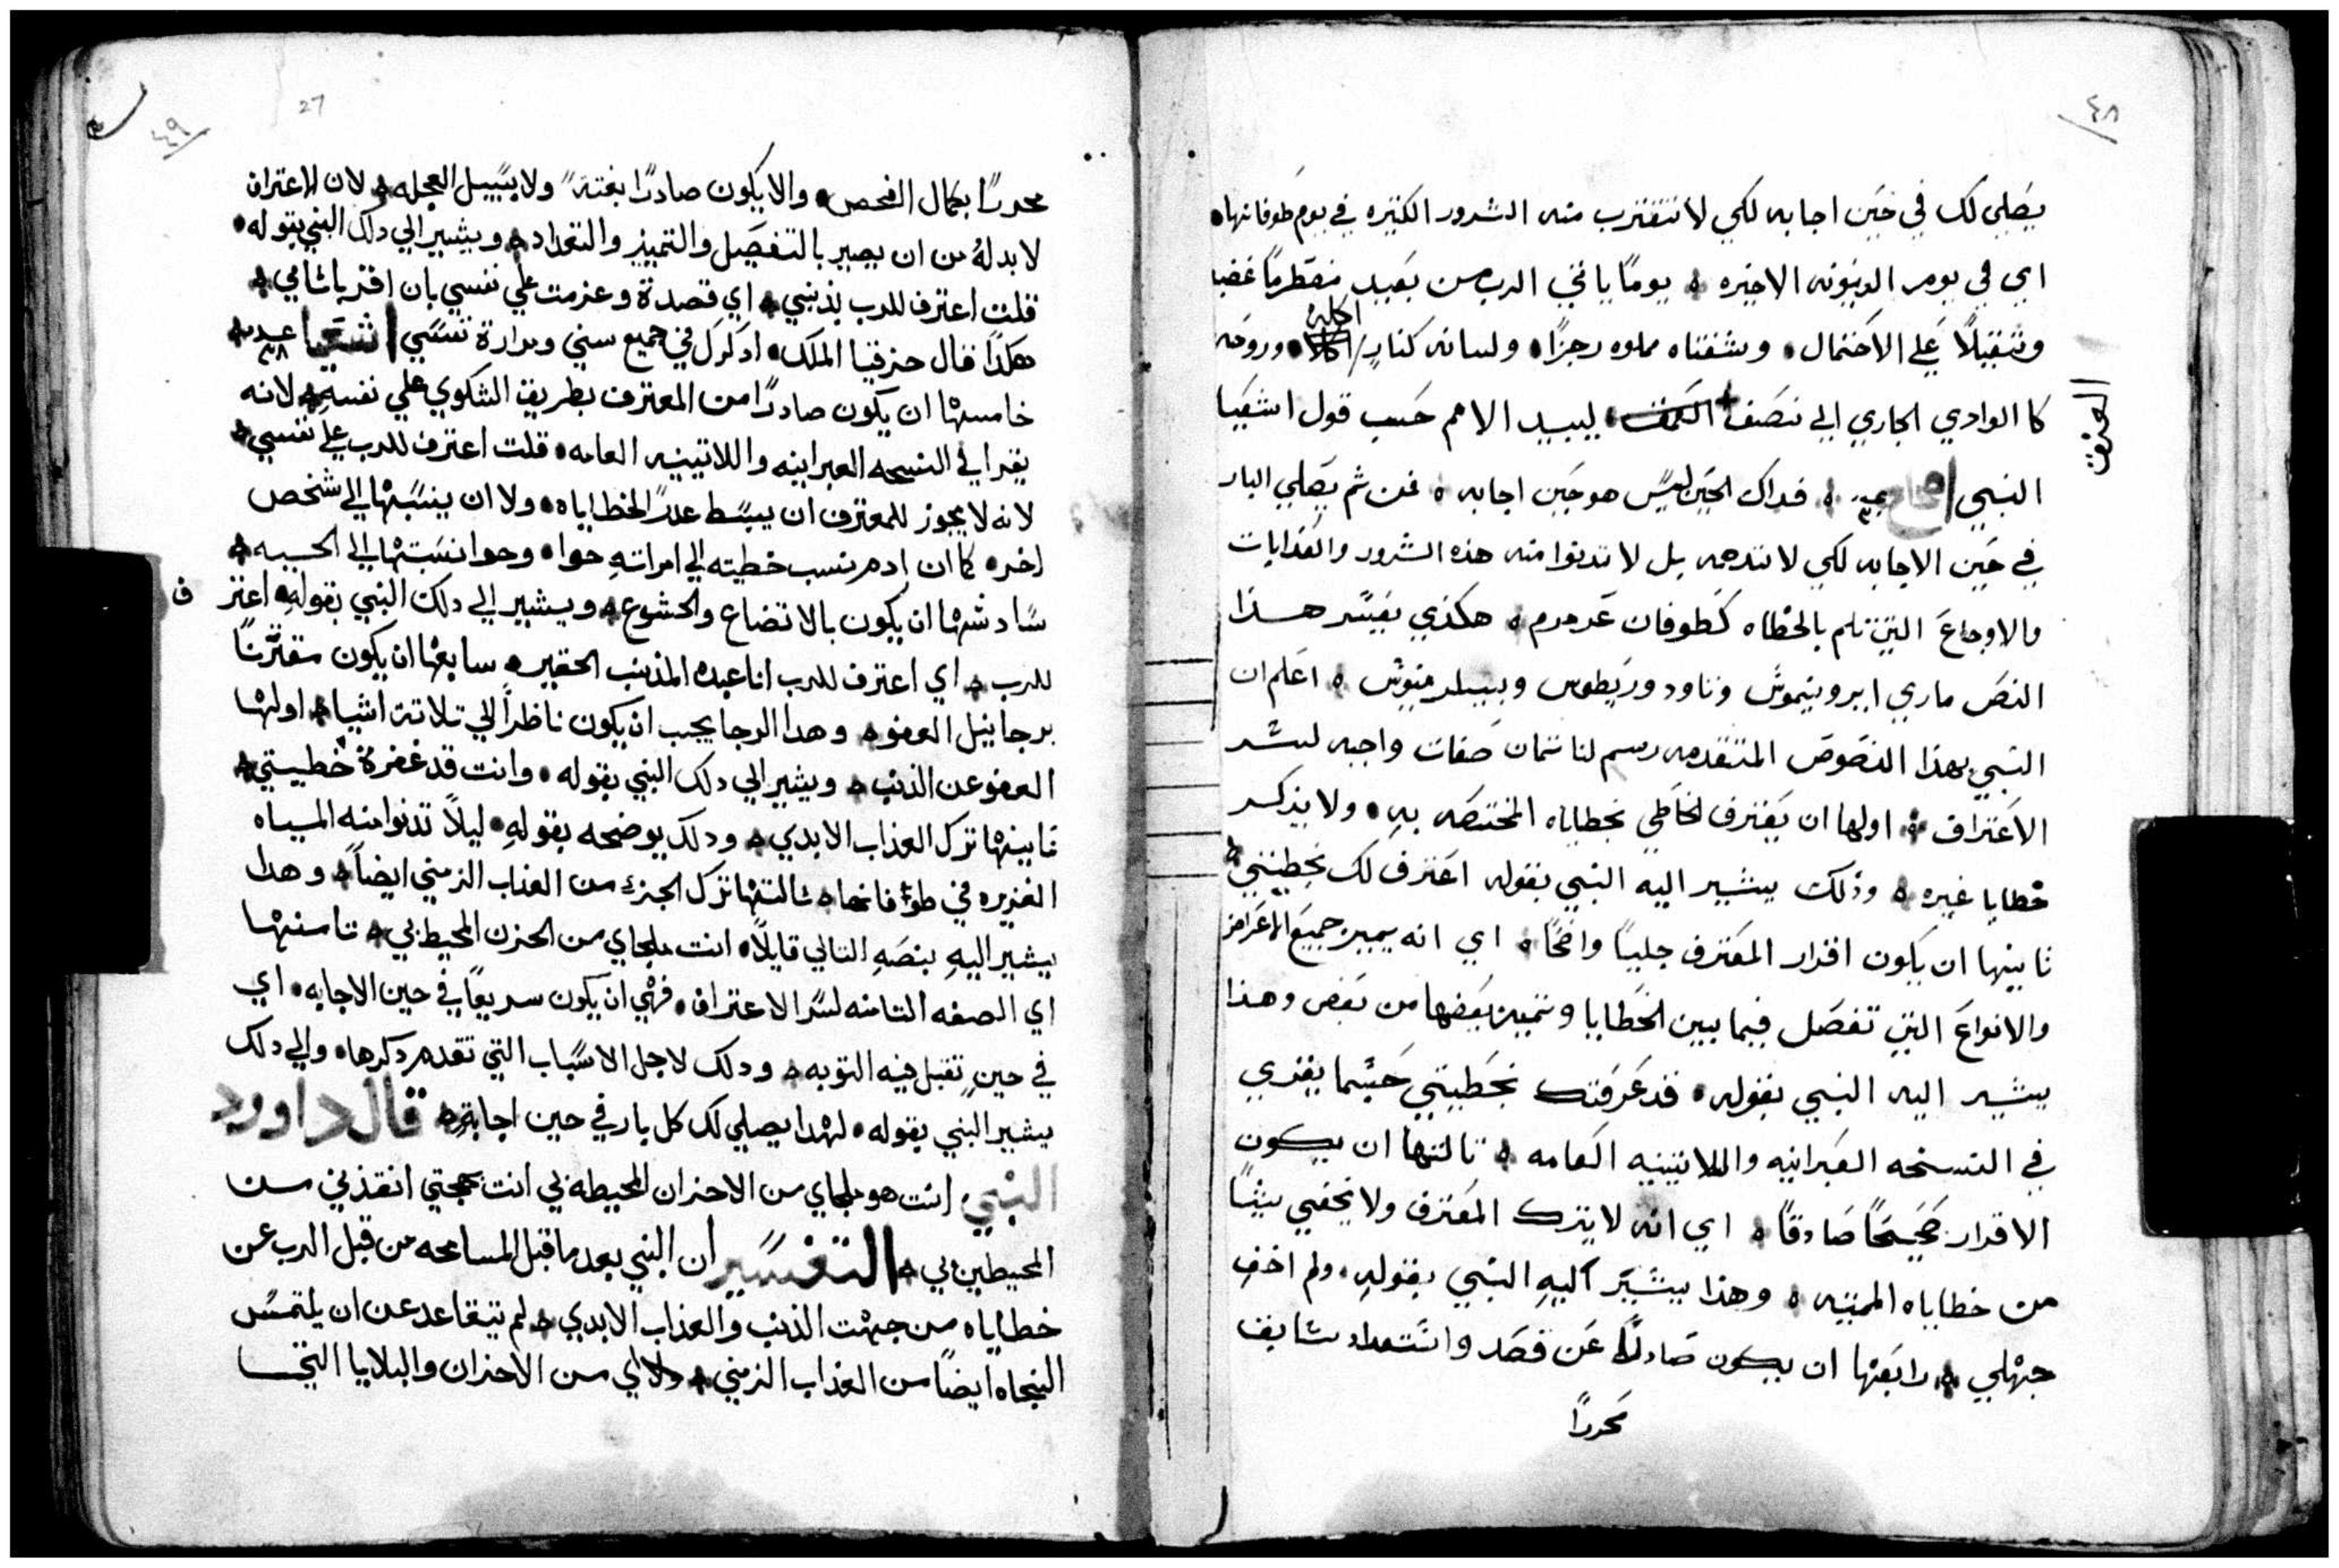 ٤٨
يصلي لك في حين اجابه لكي لا تتقترب منه الشرور الكتيره في يوم طوفانها.
اي في يوم الدينونه الاخيره ۞ يوماً ياتي الرب من بعيد مضطرماً غضبه
وثقيلاً علي الاحتمال. وشفتاه مملوه رجزاً. ولسانه كنارٍ اكله وروحه
كا الوادي الجاري الي نصف العنق ليبيد الامم حسب قول اشعيا
العنق
النبي اصحاح ٣٠ فداك الحين ليس هو حين اجابه ۞ فمن ثم يصلي البار
في حين الاجابه لكي لا تدهمه بل لا تدنوا منه هذه الشرور والعذابات
والاوجاع التي تلم بالخطاه كطوفان عرمرم ۞ هكذي يفسر هذا
النص ماري ايرونيموس وتاودوريطوس وبيلرمينوس ۞ اعلم ان
النبي بهذا النصوص المتقدمه رسم لنا تمان صفات واجبه لسر
الاعتراف ۞ اولها ان يعترف الخاطي بخطاياه المختصه بهِ. ولا يذكر
خطايا غيره ۞ وذلك يشير اليه النبي بقوله اعترف لك بخطيتي ۞
تانيها ان يكون اقرار المعترف جلياً واضحاً ۞ اي انه يميز جميع الاغراض
والانواع التي تفصل فيما بين الخطايا وتميز بعضها من بعض وهذا
يشير اليه النبي بقوله. قد عرفتك بخطيتي حسبما يقري
في النسخه العبرانيه واللاتينيه العامه ۞ تالتها ان يكون
الاقرار صحيحاً صادقاً ۞ اي انه لا يترك المعترف ولا يخفي شياً
من خطاياه المميته ۞ وهذا يشير اليهِ النبي بقولهِ. ولم اخفِ
جهلي ۞ رابعتها ان يكون صادراً عن قصد واستعداد سابق
محرراً
٤٩
27
محرراً بكمال الفحص. والا يكون صادراً بغتةً ولا بسبيل العجله ۞ لان الاعتراف
لا بد لهُ من ان يصير بالتفصيل والتمييز والتعداد ۞ ويشير الي دلك النبي بقوله.
قلت اعترف للرب بذنبي ۞ اي قصدة وعزمت علي نفسي بان اقر باثامي ۞
هكذا قال حزقيا الملك. ادكر لك في جميع سني ومرارة نفسي اشعيا عدد ٣٨
خامستها ان يكون صادراً من المعترف بطريق الشكوي علي نفسهِ ۞ لانه
يقرا في النسخه العبرانيه واللاتينيه العامه. قلت اعترف للرب علي نفسي ۞
لانه لا يجوز للمعترف ان يبسط عدراً لخطاياه. ولا ان ينسبها الي شخص
اخر. كما ان ادم نسب خطيته الي امراتهِ حوا. وحوا نسبتها الي الحيه ۞
سادستها ان يكون بالاتضاع والخشوع ۞ ويشير الي دلك النبي بقولهِ. اعترف
للرب ۞ اي اعترف للرب انا عبده المذنب الحقير ۞ سابعتها ان يكون مقترناً
برجا نيل العفو ۞ وهدا الرجا يجب ان يكون ناظراً الي تلاتة اشيا ۞ اولها
العفو عن الذنب ۞ ويشير الي دلك النبي بقوله. وانت قد غفرة خطييتي ۞
تانيتها ترك العذاب الابدي ۞ ودلك يوضحه بقولهِ. ليلاً تدنوا منه المياه
الغزيره في طوفانها ۞ تالتتها ترك الجزء من العذاب الزمني ايضاً ۞ وهدا
يشير اليهِ بنصهِ التالي قايلاً. انت ملجاي من الحزن المحيط بي ۞ تامنتها
اي الصفه التامنه لسر الاعتراف. فهي ان يكون سريعاً في حين الاجابه. اي
في حينٍ تقبل فيه التوبه ۞ ودلك لاجل الاسباب التي تقدم دكرها. والي دلك
يشير النبي بقوله. لهدا يصلي لك كل بار في حين اجابةٍ ۞ قال داوود
النبي انت هو ملجاي من الاحزان المحيطه بي انت بهجتي انقذني من
المحيطين بي ۞ التفسير ان النبي بعد ما قبل المسامحه من قبل الرب عن
خطاياه من جهت الذنب والعذاب الابدي ۞ لم يتقاعد عن ان يلتمس
النجاه ايضاً من العذاب الزمني ۞ اي من الاحزان والبلايا التي